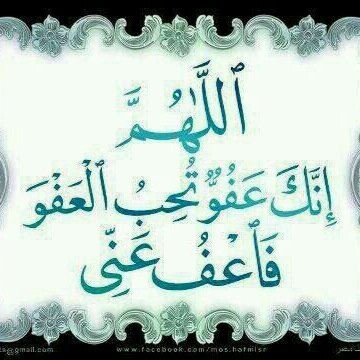 ٱللَّهُمَّ
إِنَّكَ عَفُوٌّ تُحِبُّ ٱلْعَفْوَ
فَٱعْفُ عَنِّى
s@gmail.com www.facebook.com/mos.hafmisr